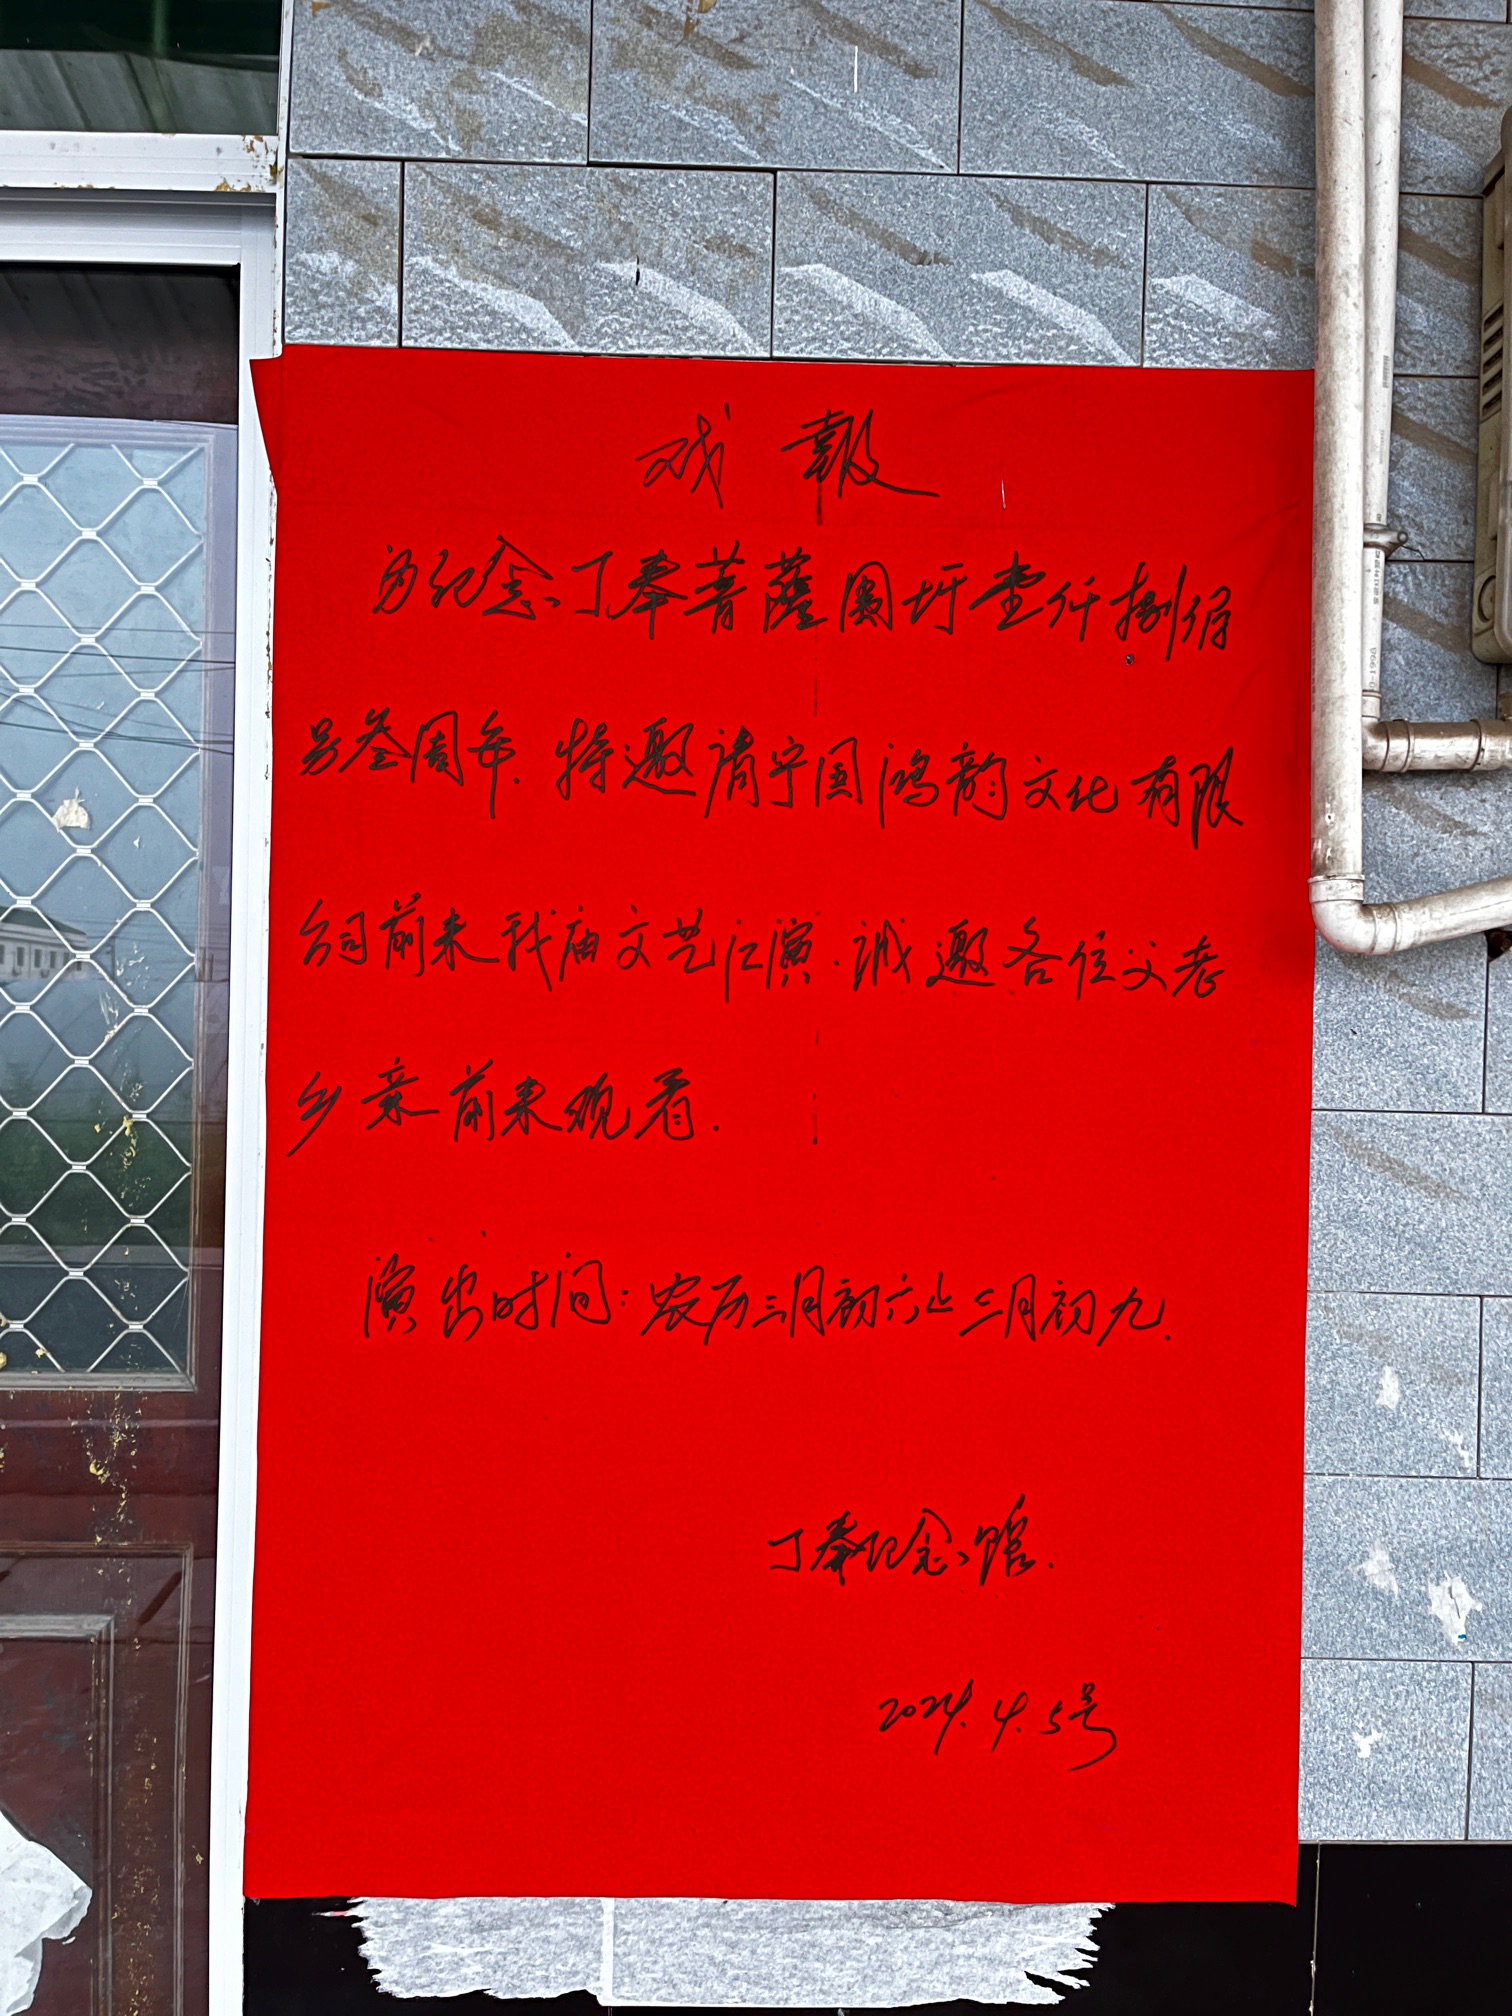 戏報
为纪念丁奉菩薩圍圩壹仟捌佰
另叁周年.特邀请宁国鸿韵文化有限
公司前来我庙文艺汇演.诚邀各位父老
乡亲前来观看.
演出时间:农历三月初六止三月初九.
丁奉纪念馆.
2024.4.5号